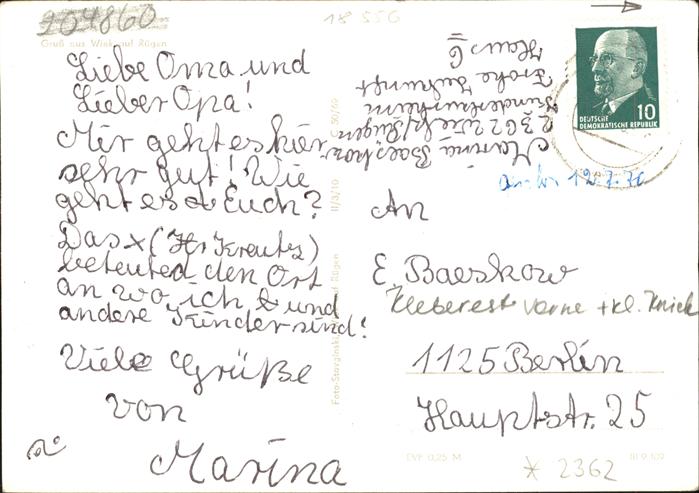 204860
18 556
Gruß aus Wiek auf Rügen
Liebe Oma und
Lieber Opa!
Mir geht es hier
sehr gut! Wie
geht es Euch?
Das x (Ihr Kreutz)
beteuted den Ort
an wo ich & und
andere Kinder sind!
Viele Grüße
von
Marina
Marina Baeskow
2362 Wiek/Rügen
Kinderkurheim
Frohe Zukunft
Haus 6
10
DEUTSCHE
DEMOKRATISCHE REPUBLIK
12.7.70
An
E. Baeskow
Kleberest vorne + kl. Knick
1125 Berlin
Hauptstr. 25
II/3/10
EVP 0,25 M
* 2362